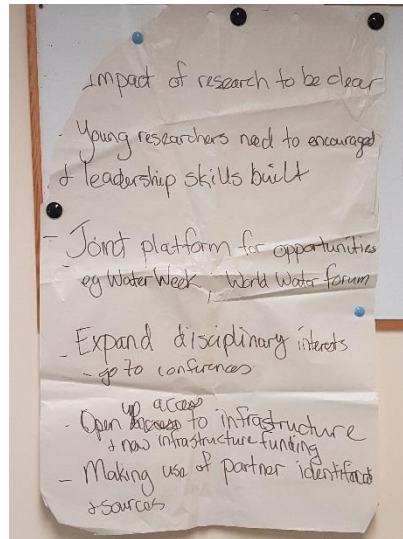 - Impact of research to be clear
- Young researchers need to encouraged
& leadership skills built
- Joint platform for opportunities
- eg Water Week, World Water forum
- Expand disciplinary interests
- go to conferences
up access
- Open to infrastructure
& new infrastructure funding
- Making use of partner
& sources